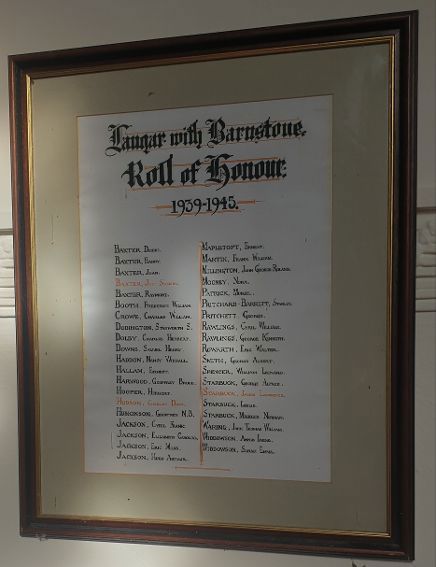 Langar with Barnstone.
Roll of Honour.
1939-1945.
BAXTER,
BAXTER, HARRY.
BAXTER, JOAN.
BAXTER,
BAXTER, RAYMOND.
BOOTH, FREDERICK WILLIAM.
CROWE, CHARLES WILLIAM.
DODDINGTON, S.
DOLBY, CHARLES HERBERT.
DOWNS, HENRY.
HADDON, HENRY
HALLAM, ERNEST.
HARWOOD, GEOFFREY BRUCE.
HOOPER, HERBERT.
HUDSON,
HUNCKSON, GEOFFREY N.B.
JACKSON, CYRIL
JACKSON, ELIZABETH
JACKSON, ERIC
JACKSON, ARTHUR.
MAPLETOFT, ERNEST.
MARTIN, FRANK WILLIAM.
MILLINGTON, JOHN GEORGE ROLAND.
MOONEY, NORA.
PATRICK,
PRITCHARD BARRETT, STANLEY.
PRITCHETT, GEORGE.
RAWLINGS, CYRIL WILLIAM.
RAWLINGS, GEORGE KENNETH.
ROWARTH, ERIC WALTER.
SMITH, GEORGE ALBERT.
SPENCER, WILLIAM LEONARD.
STARBUCK, GEORGE ALFRED.
STARBUCK, LAWRENCE.
STARBUCK, LESLIE.
STARBUCK, NORMAN.
WARING, JACK THOMAS WILLIAM.
WIDDOWSON, ANNIE IRENE.
WIDDOWSON, SARAH EDNA.